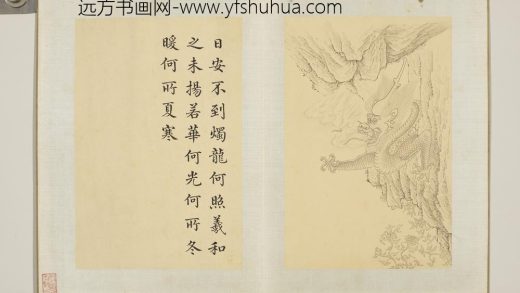 远方书画网-www.yfshuhua.com
日安不到燭龍何照羲和
之未揚若華何光何所冬
暖何所夏寒